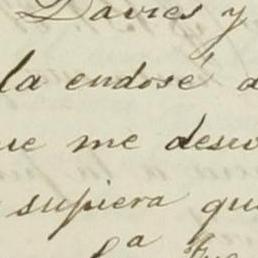 Davies y
la endosé a
ue me desco
supiera que